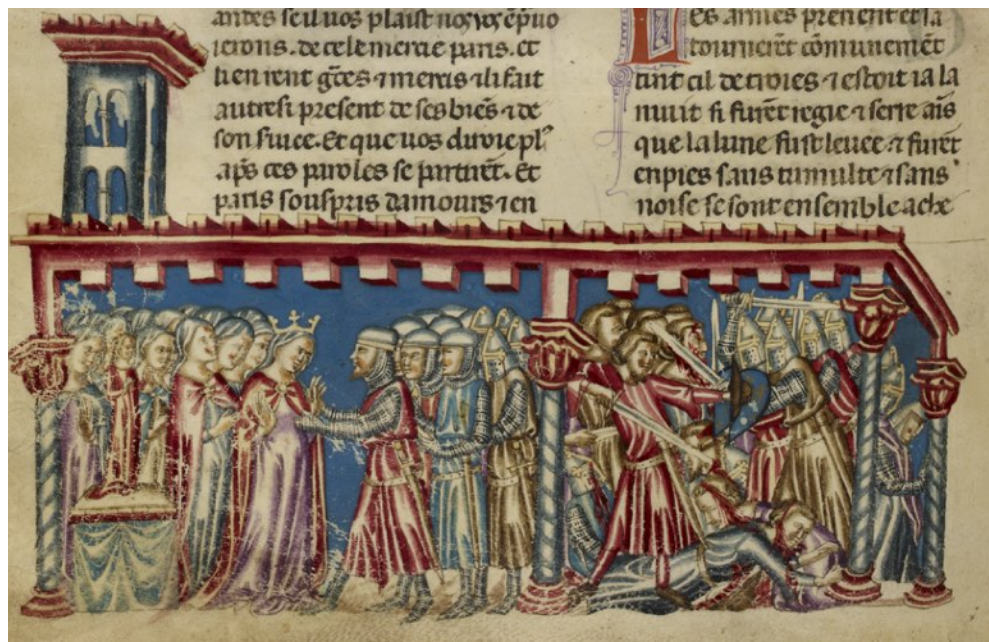 antes se il uos plaist nos uos
ierons. de cele mercie paris. et
li en rent gc̃es ⁊ mercis ⁊ li fait
autresi present de ses biẽs ⁊ de
son suice. Et que uos diroie plꝰ
ap̃s ces paroles se partirẽt. Et
paris souspris damours ⁊ en
Les armes prenent et sa
tournerẽt cõmunemẽt
tuit cil de troies ⁊ estoit ia la
nuit si furẽt regie ⁊ serre ais
que la lune fust leuee ⁊ furẽt
enpies sans tumulte ⁊ sans
noise se sont ensemble ache